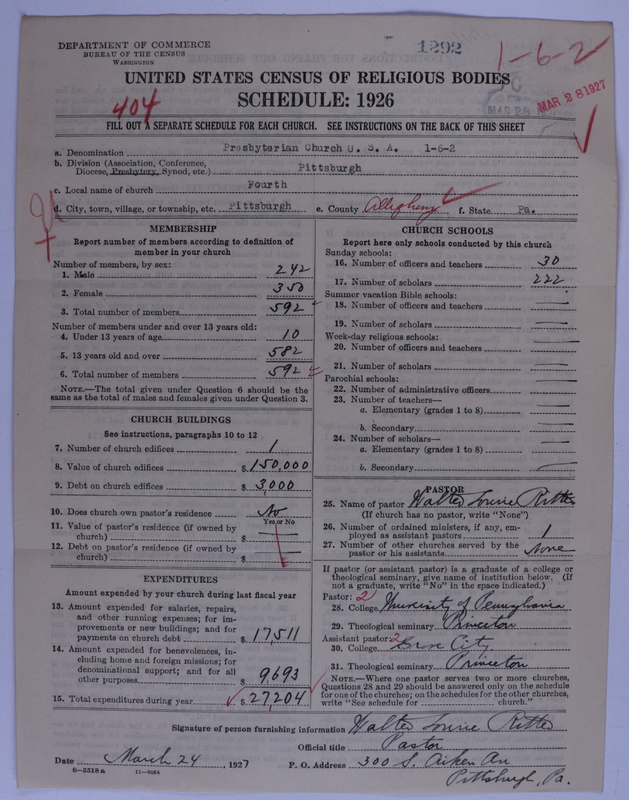 DEPARTMENT OF COMMERCE
BUREAU OF THE CENSUS
WASHINGTON
1292
1-6-2
MAR 28 1927
UNITED STATES CENSUS OF RELIGIOUS BODIES
SCHEDULE: 1926
404
FILL OUT A SEPARATE SCHEDULE FOR EACH CHURCH. SEE INSTRUCTIONS ON THE BACK OF THIS SHEET
a. Denomination Presbyterian Church U. S. A. 1-6-2
b. Division (Association, Conference, Diocese, Presbytery, Synod, etc.) Pittsburgh
c. Local name of church Fourth
d. City, town, village, or township, etc. Pittsburgh e. County Allegheny f. State Pa.
MEMBERSHIP
Report number of members according to definition of
member in your church
Number of members, by sex:
1. Male 242
2. Female 350
3. Total number of members 592
Number of members under and over 13 years old:
4. Under 13 years of age 10
5. 13 years old and over 582
6. Total number of members 592
NOTE.—The total given under Question 6 should be
same as the total of males and females given under Question 3.
CHURCH BUILDINGS
See instructions, paragraphs 10 to 12
7. Number of church edifices 1
8. Value of church edifices $150,000
9. Debt on church edifices $3,000
10. Does church own pastor's residence No
Yes or No
11. Value of pastor's residence (if owned by
church) $
12. Debt on pastor's residence (if owned by
church) $
EXPENDITURES
Amount expended by your church during last fiscal year
13. Amount expended for salaries, repairs,
and other running expenses; for im-
provements or new buildings; and for
payments on church debt $17,511
14. Amount expended for benevolences, in-
cluding home and foreign missions; for
denominational support; and for all
other purposes $9693
15. Total expenditures during year $27,204
CHURCH SCHOOLS
Report here only schools conducted by this church
Sunday schools:
16. Number of officers and teachers 30
17. Number of scholars 222
Summer vacation Bible schools:
18. Number of officers and teachers
19. Number of scholars
Week-day religious schools:
20. Number of officers and teachers
21. Number of scholars
Parochial schools:
22. Number of administrative officers
23. Number of teachers—
a. Elementary (grades 1 to 8)
b. Secondary
24. Number of scholars—
a. Elementary (grades 1 to 8)
b. Secondary
PASTOR
25. Name of pastor Walter
(If church has no pastor, write "None")
26. Number of ordained ministers, if any, em-
ployed as assistant pastors 1
27. Number of other churches served by the
pastor or his assistants None
If pastor (or assistant pastor) is a graduate of a college or
theological seminary, give name of institution below. (If
not a graduate, write "No" in the space indicated.)
Pastor: 2
28. College University of Pennsylvania
29. Theological seminary Princeton
Assistant pastor: 2
30. College Grove City
31. Theological seminary Princeton
NOTE.—Where one pastor serves two or more churches,
Questions 28 and 29 should be answered only on the schedule
for one of the churches; on the schedules for the other churches,
write "See schedule for church."
Signature of person furnishing information Walter
Official title Pastor
Date March 24, 1927 P. O. Address 300 S. Aiken Av
Pittsburgh, Pa.
8-5518 a 11-9054